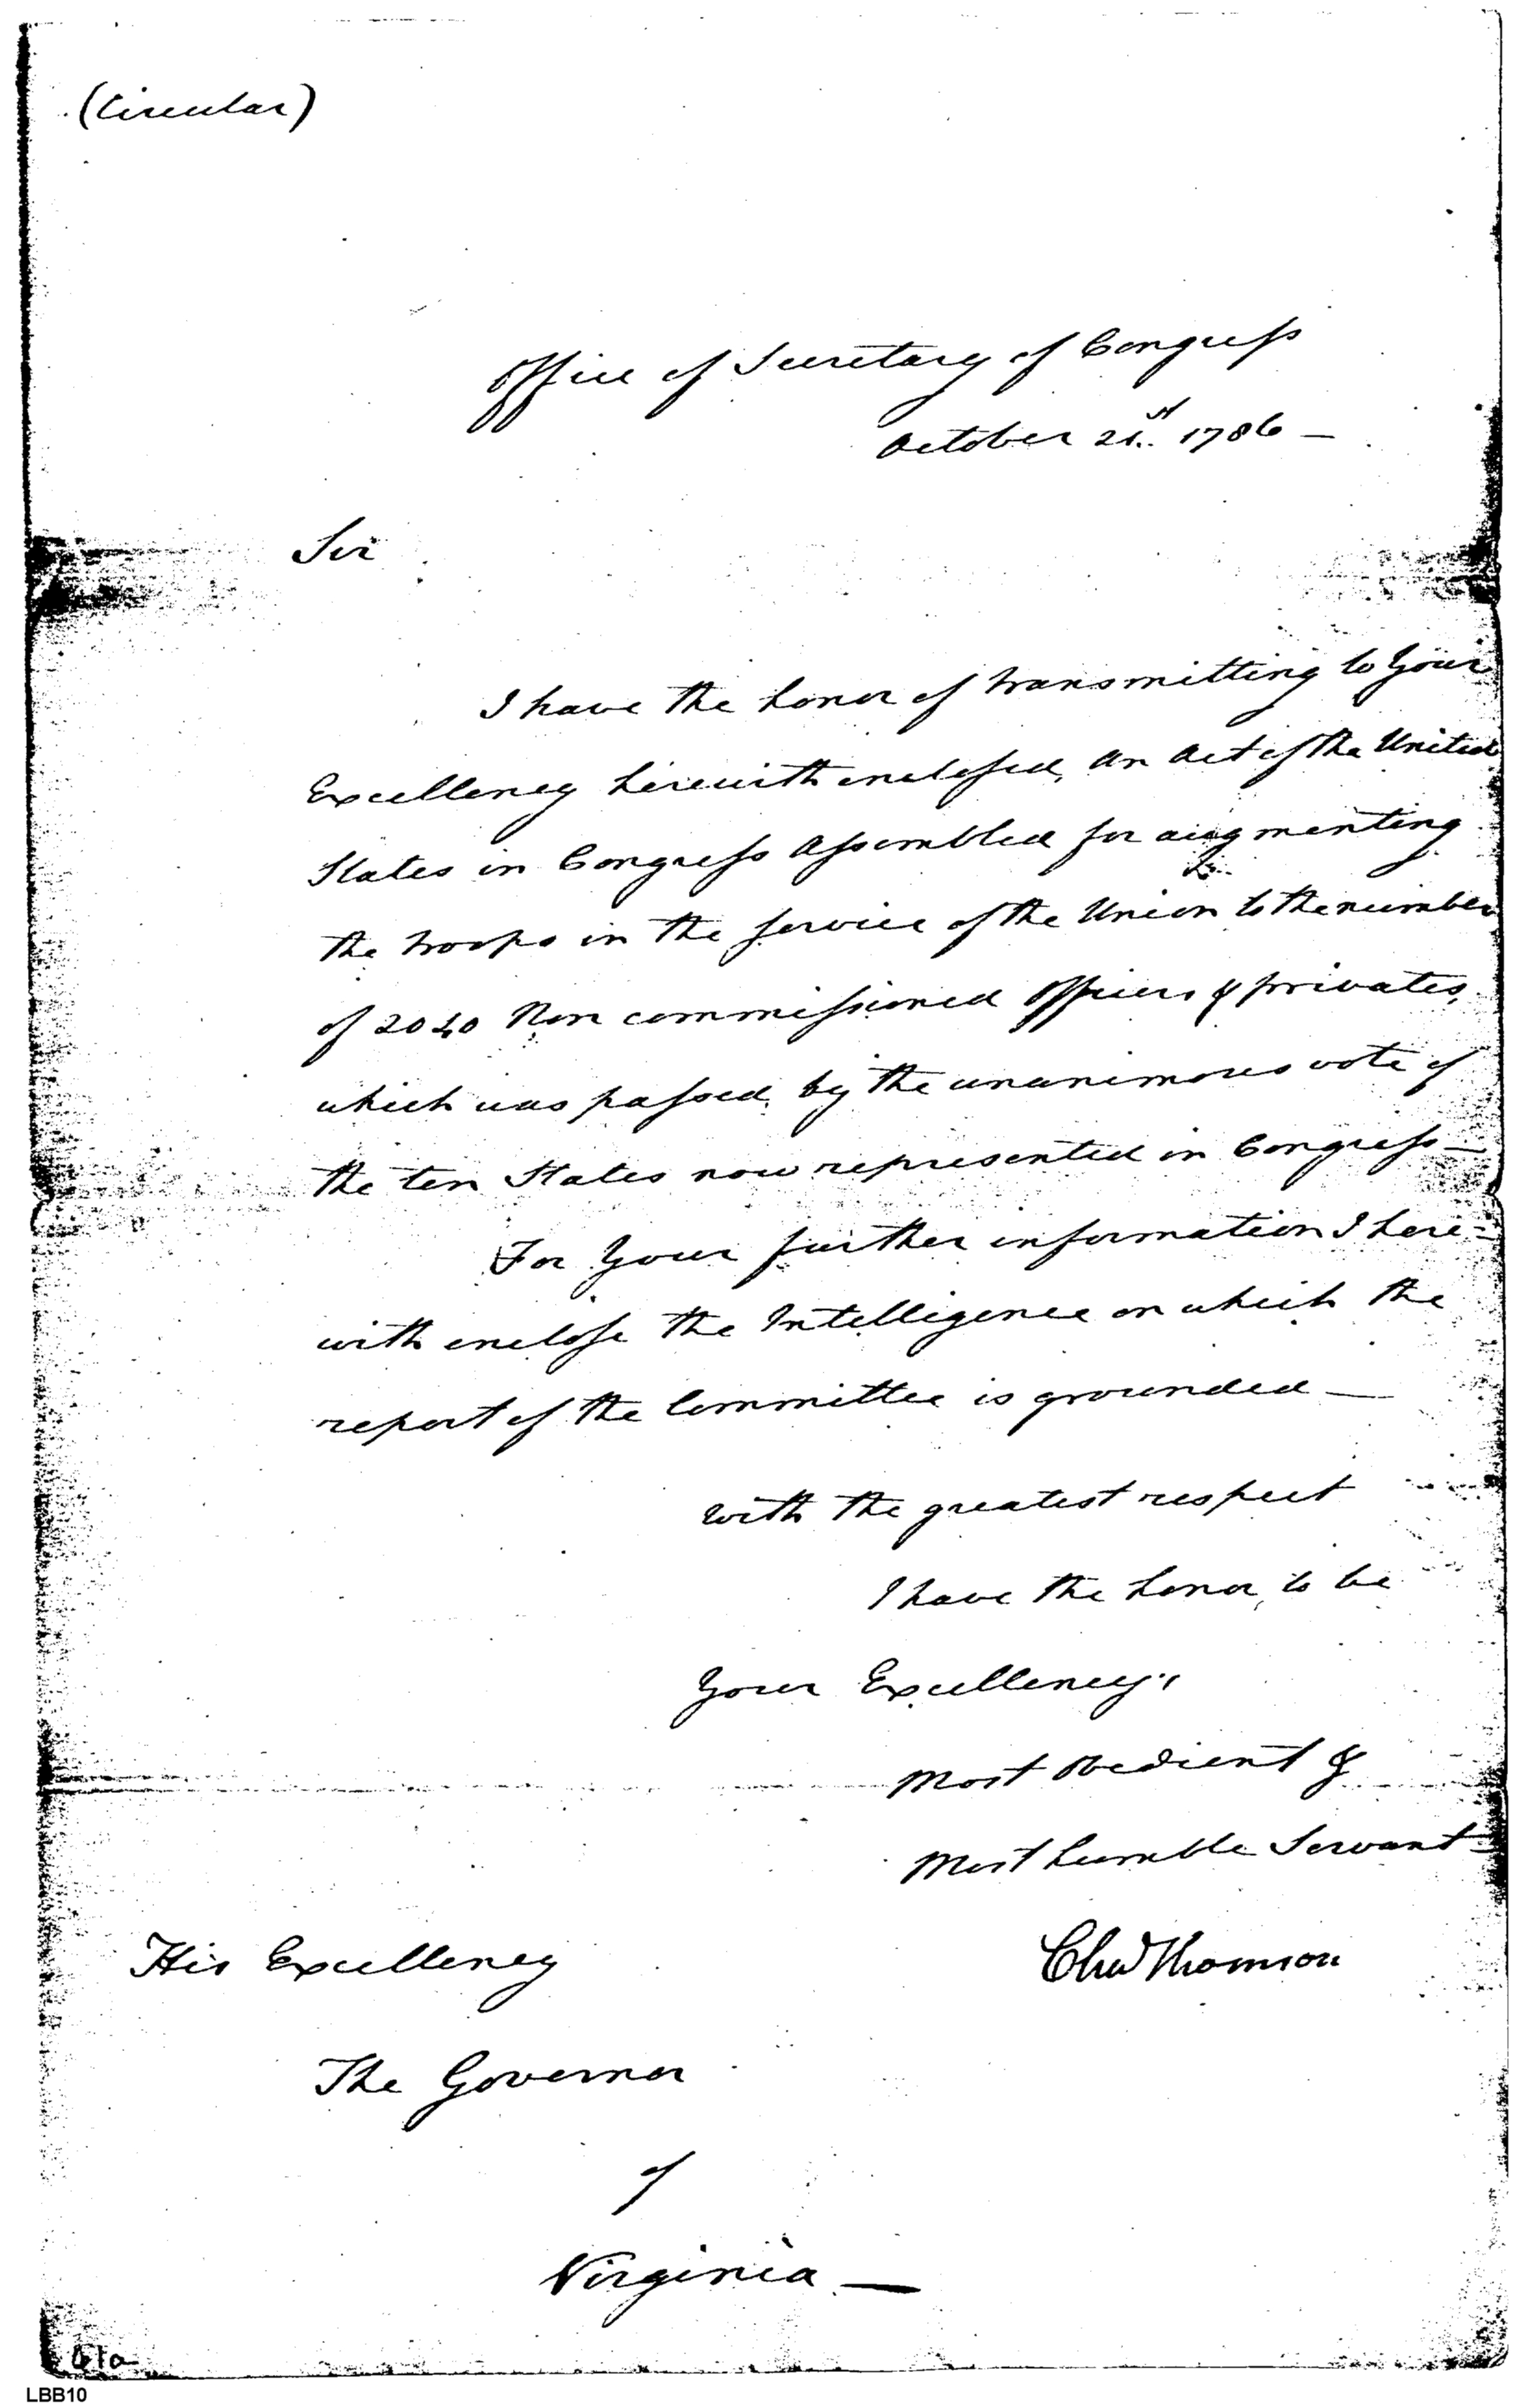 (Circular)
Office of Secretary of Congress
October 21st 1786 —
Sir
I have the honor of transmitting to Your
Excellency herewith enclosed, an Act of the United
States in Congress Assembled for augmenting
the troops in the service of the Union to the number
of 2040 Non commissioned Officers & privates,
which was passed by the unanimous vote of
the ten States now represented in Congress —
For Your further information I here=
with enclose the Intelligence on which the
report of the Committee is grounded —
With the greatest respect
I have the honor to be
Your Excellency's
Most Obedient &
Most humble Servant
Chas Thomson
His Excellency
The Governor
of
Virginia —
61a
LBB10